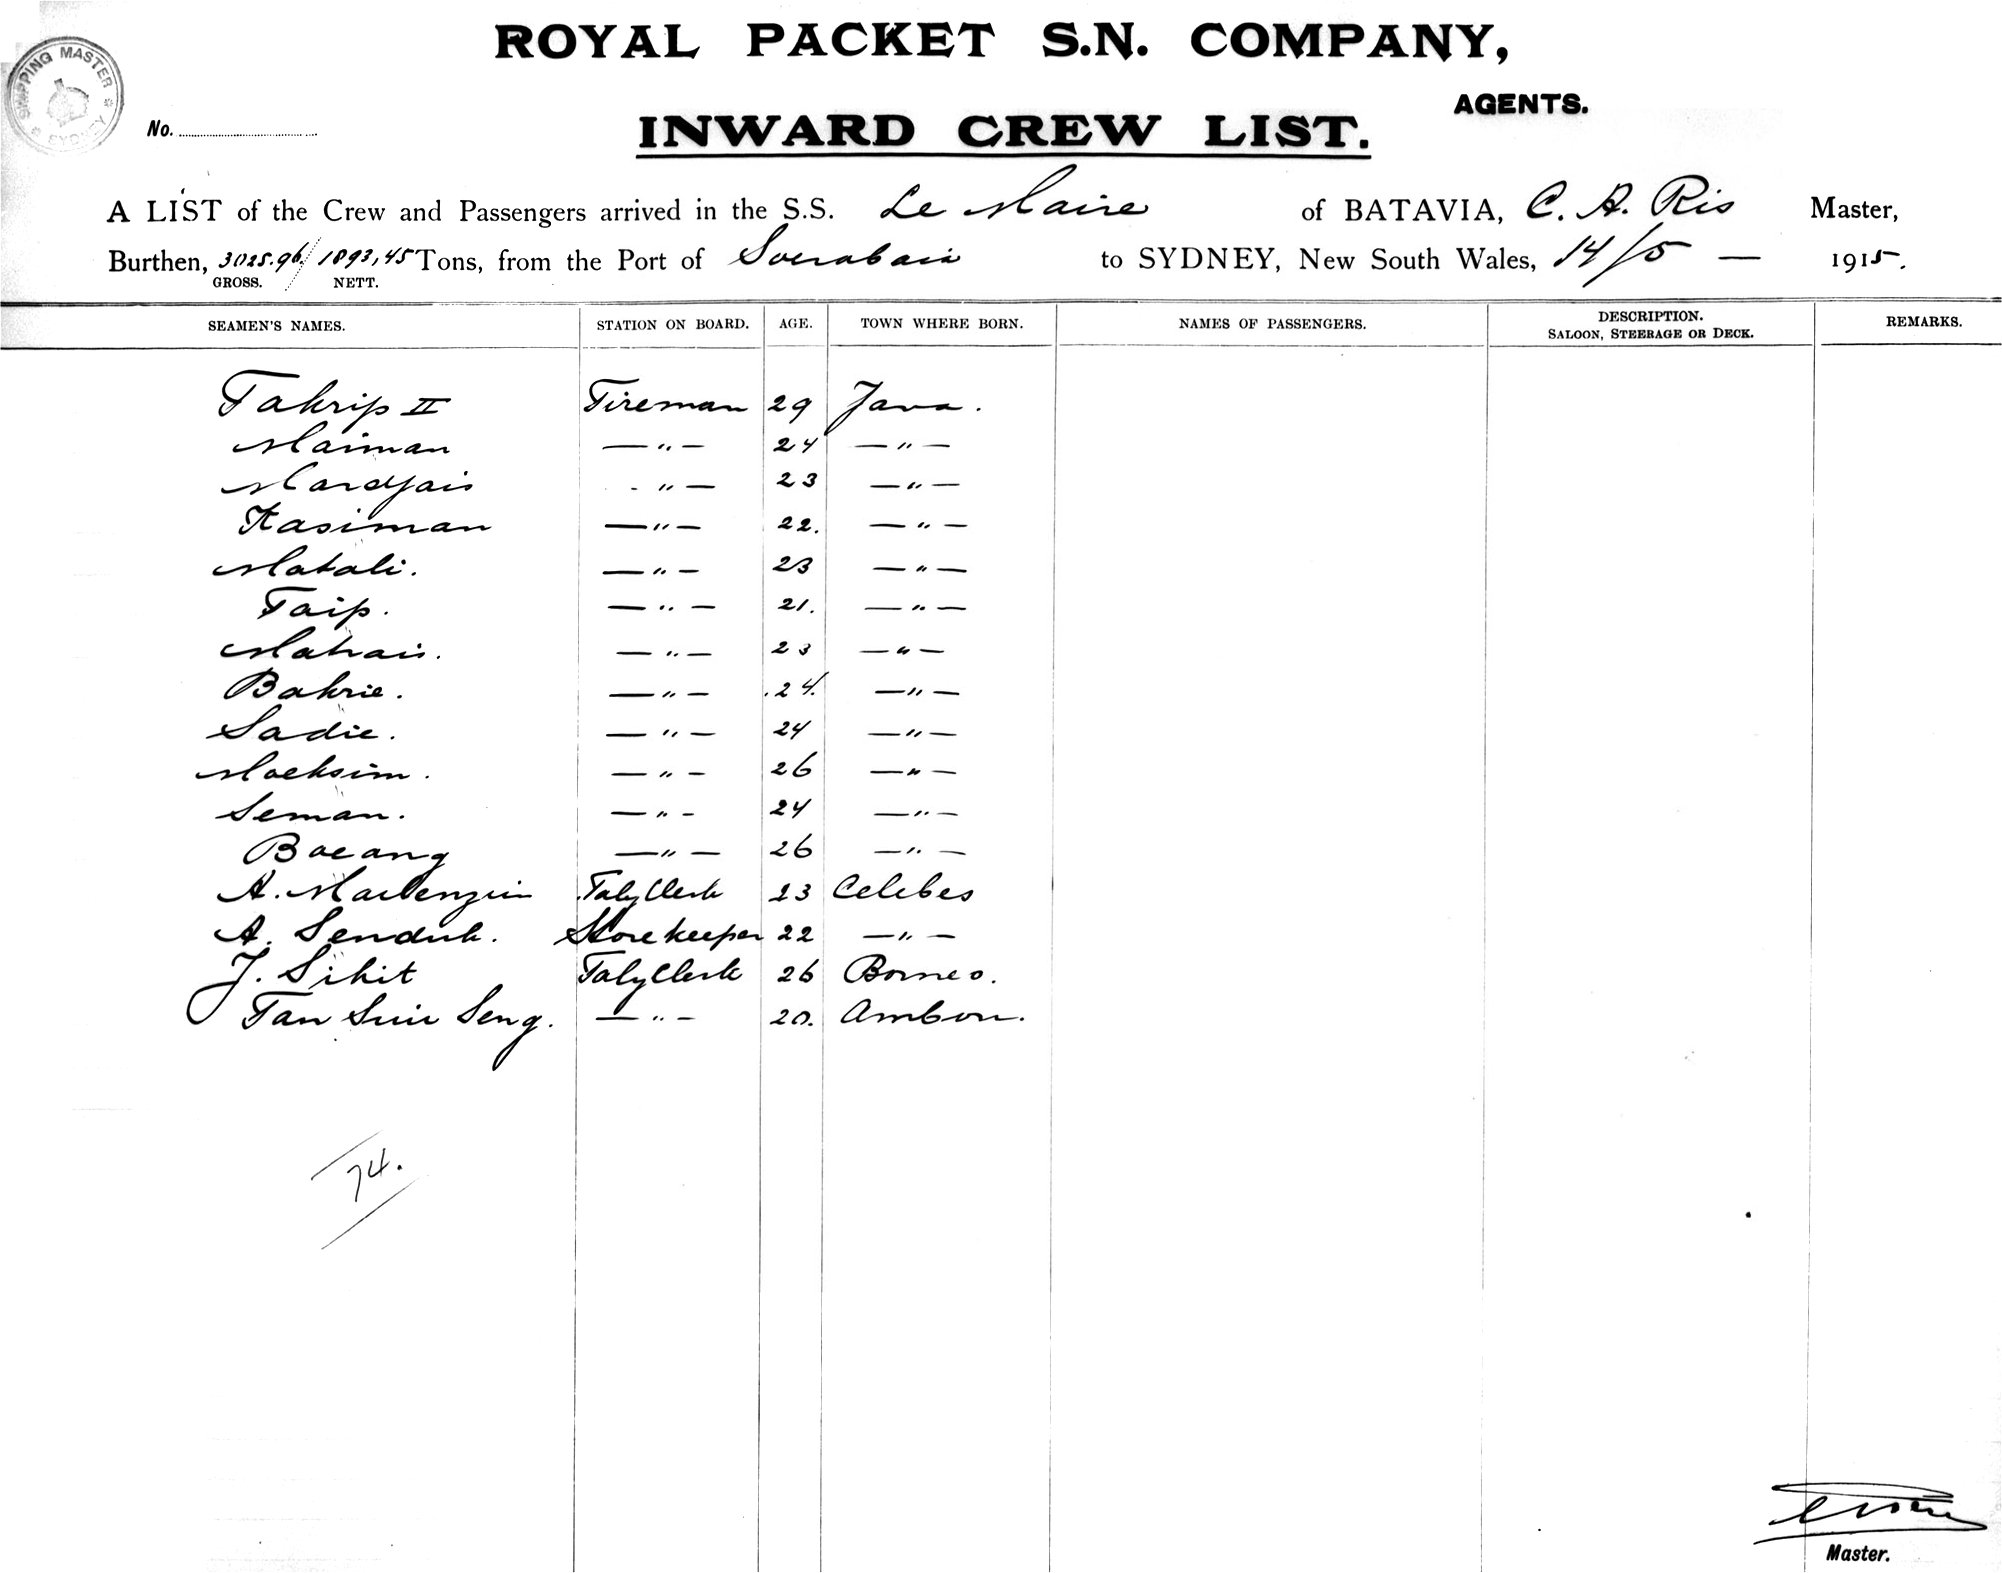 ROYAL PACKET S.N. COMPANY,
AGENTS.
SHIPPING MASTER SYDNEY
No.
INWARD CREW LIST.
A LIST of the Crew and Passengers arrived in the S.S. Le Maire of BATAVIA, C. A. Ris Master,
Burthen, 3025.96/1893,45 Tons, from the Port of Soerabaia to SYDNEY, New South Wales, 14/5 — 1915.
GROSS. NETT.
SEAMEN'S NAMES. STATION ON BOARD. AGE. TOWN WHERE BORN. NAMES OF PASSENGERS. DESCRIPTION. SALOON, STEERAGE OR DECK. REMARKS.
Takrip II Fireman 29 Java.
Maiman —"— 24 —"—
Mardjais "— 23 —"—
Kasiman —"— 22. —"—
Matali. —"— 23 —"—
Taip. —"— 21. —"—
Matrais. —"— 23 —"—
Bakrie. —"— 24. —"—
Sadie. —"— 24 —"—
Moeksim. —"— 26 —"—
Seman. —"— 24 —"—
Boeang —"— 26 —"—
A. Taly Clerk 23 Celebes
A. Senduk. Storekeeper 22 —"—
J. Sihit Taly Clerk 26 Borneo.
Tan Seng. —"— 20. Ambon.
74.
Master.